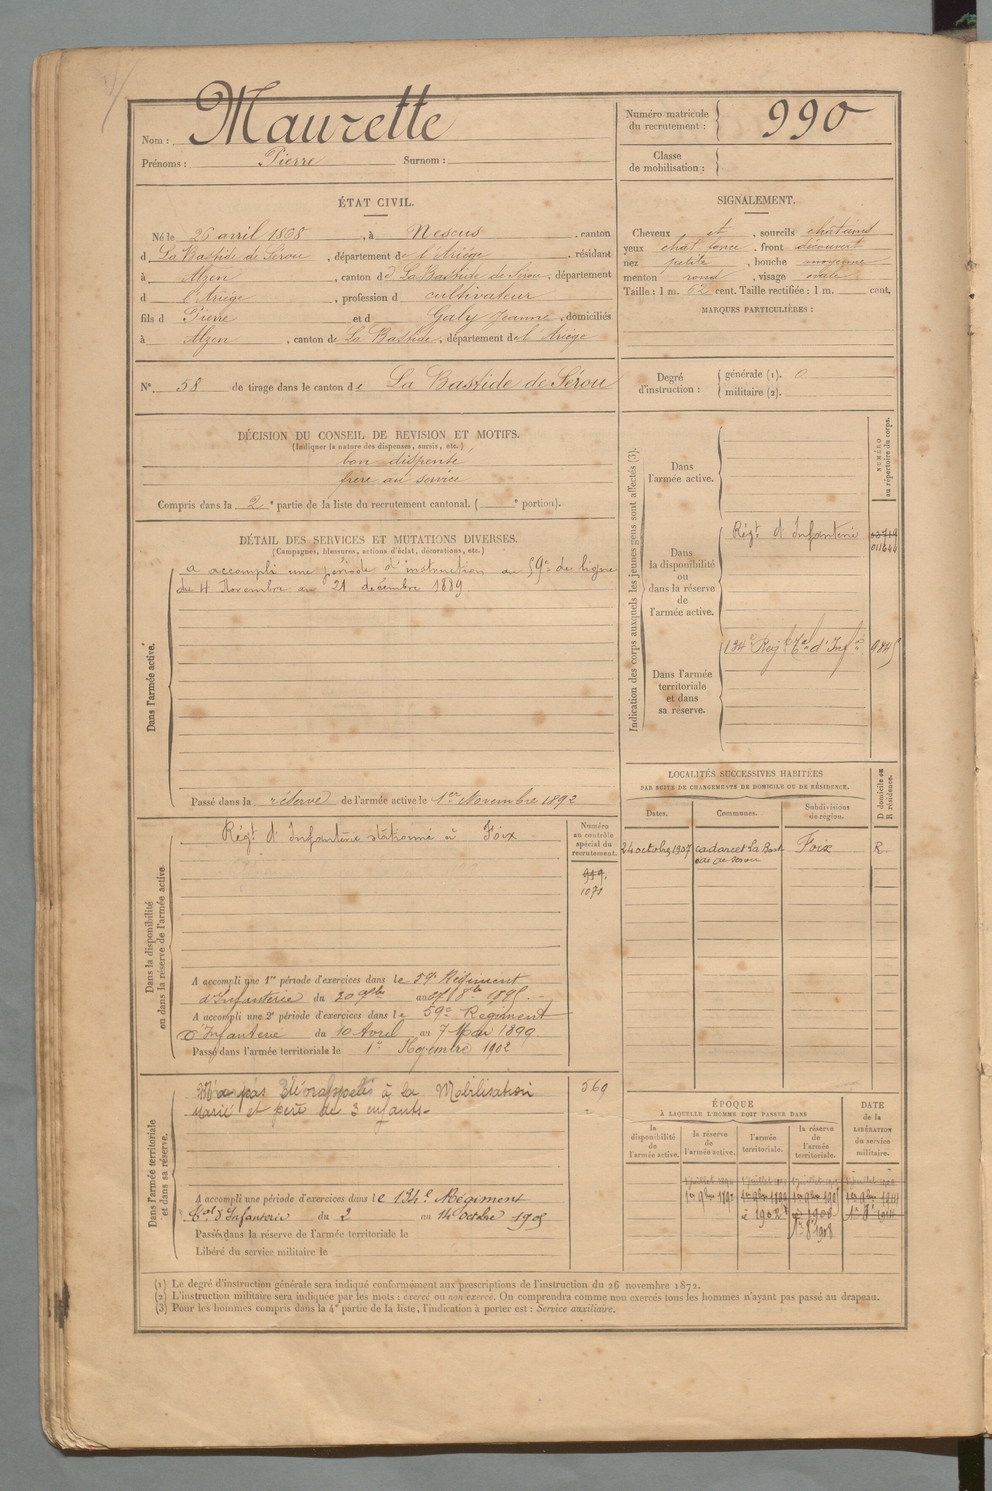 Nom : Maurette
Prénoms : Pierre Surnom :
Numéro matricule du recrutement : 990
Classe de mobilisation :
ÉTAT CIVIL.
Né le 26 avril 1868, à Nescus, canton
d La Bastide de Sérou, département de l'Ariège, résidant
à Alzen, canton de La Bastide de Sérou, département
d l'Ariège, profession d cultivateur
fils d Pierre et d Galy Jeanne, domiciliés
à Alzen, canton de La Bastide, département de l'Ariège
N° 58 de tirage dans le canton de La Bastide de Sérou
SIGNALEMENT.
Cheveux et, sourcils chatains
yeux chat fonce, front découvert
nez petite, bouche moyenne
menton rond, visage ovale
Taille : 1 m. 62 cent. Taille rectifiée : 1 m. cent.
MARQUES PARTICULIÈRES :
Degré d'instruction : générale (1). 0
militaire (2).
DÉCISION DU CONSEIL DE REVISION ET MOTIFS.
(Indiquer la nature des dispenses, sursis, etc.)
bon dispensé
frère au service
Compris dans la 2e partie de la liste du recrutement cantonal. ( e portion).
DÉTAIL DES SERVICES ET MUTATIONS DIVERSES.
(Campagnes, blessures, actions d'éclat, décorations, etc.)
Dans l'armée active.
a accompli une période d'instruction au 59e de ligne
du 4 Novembre au 21 décembre 1889
Passé dans la réserve de l'armée active le 1er Novembre 1892
Indication des corps auxquels les jeunes gens sont affectés (3).
NUMÉRO au répertoire du corps.
Dans l'armée active.
Dans la disponibilité ou dans la réserve de l'armée active.
Régt d'Infanterie
Dans l'armée territoriale et dans sa réserve.
134e Régt Tal d'Infie
LOCALITÉS SUCCESSIVES HABITÉES
PAR SUITE DE CHANGEMENTS DE DOMICILE OU DE RÉSIDENCE.
Dates. Communes. Subdivisions de région. D domicile ou R résidence.
24 octobre 1907 Cadarcet La Bastide de Serou Foix R
Dans la disponibilité ou dans la réserve de l'armée active.
Numéro au contrôle spécial du recrutement.
Régt d'Infanterie stationné à Foix
1071
A accompli une 1re période d'exercices dans le 59e Régiment
d'Infanterie du 30 7bre au 8bre 1895
A accompli une 2e période d'exercices dans le 59e Régiment
d'Infanterie du 10 Avril au 7 Mai 1899
Passé dans l'armée territoriale le 1er Novembre 1902
Dans l'armée territoriale et dans sa réserve.
à la Mobilisation
marié et père de 3 enfants
569
A accompli une période d'exercices dans le 134e Régiment
Tal d'Infanterie du 2 au 14 octobre 1905
Passé dans la réserve de l'armée territoriale le
Libéré du service militaire le
ÉPOQUE
À LAQUELLE L'HOMME DOIT PASSER DANS
la disponibilité de l'armée active.
la réserve de l'armée active.
l'armée territoriale.
la réserve de l'armée territoriale.
DATE de la LIBÉRATION du service militaire.
1902
1908
(1) Le degré d'instruction générale sera indiqué conformément aux prescriptions de l'instruction du 26 novembre 1872.
(2) L'instruction militaire sera indiquée par les mots : exercé ou non exercé. On comprendra comme non exercés tous les hommes n'ayant pas passé au drapeau.
(3) Pour les hommes compris dans la 4e partie de la liste, l'indication à porter est : Service auxiliaire.